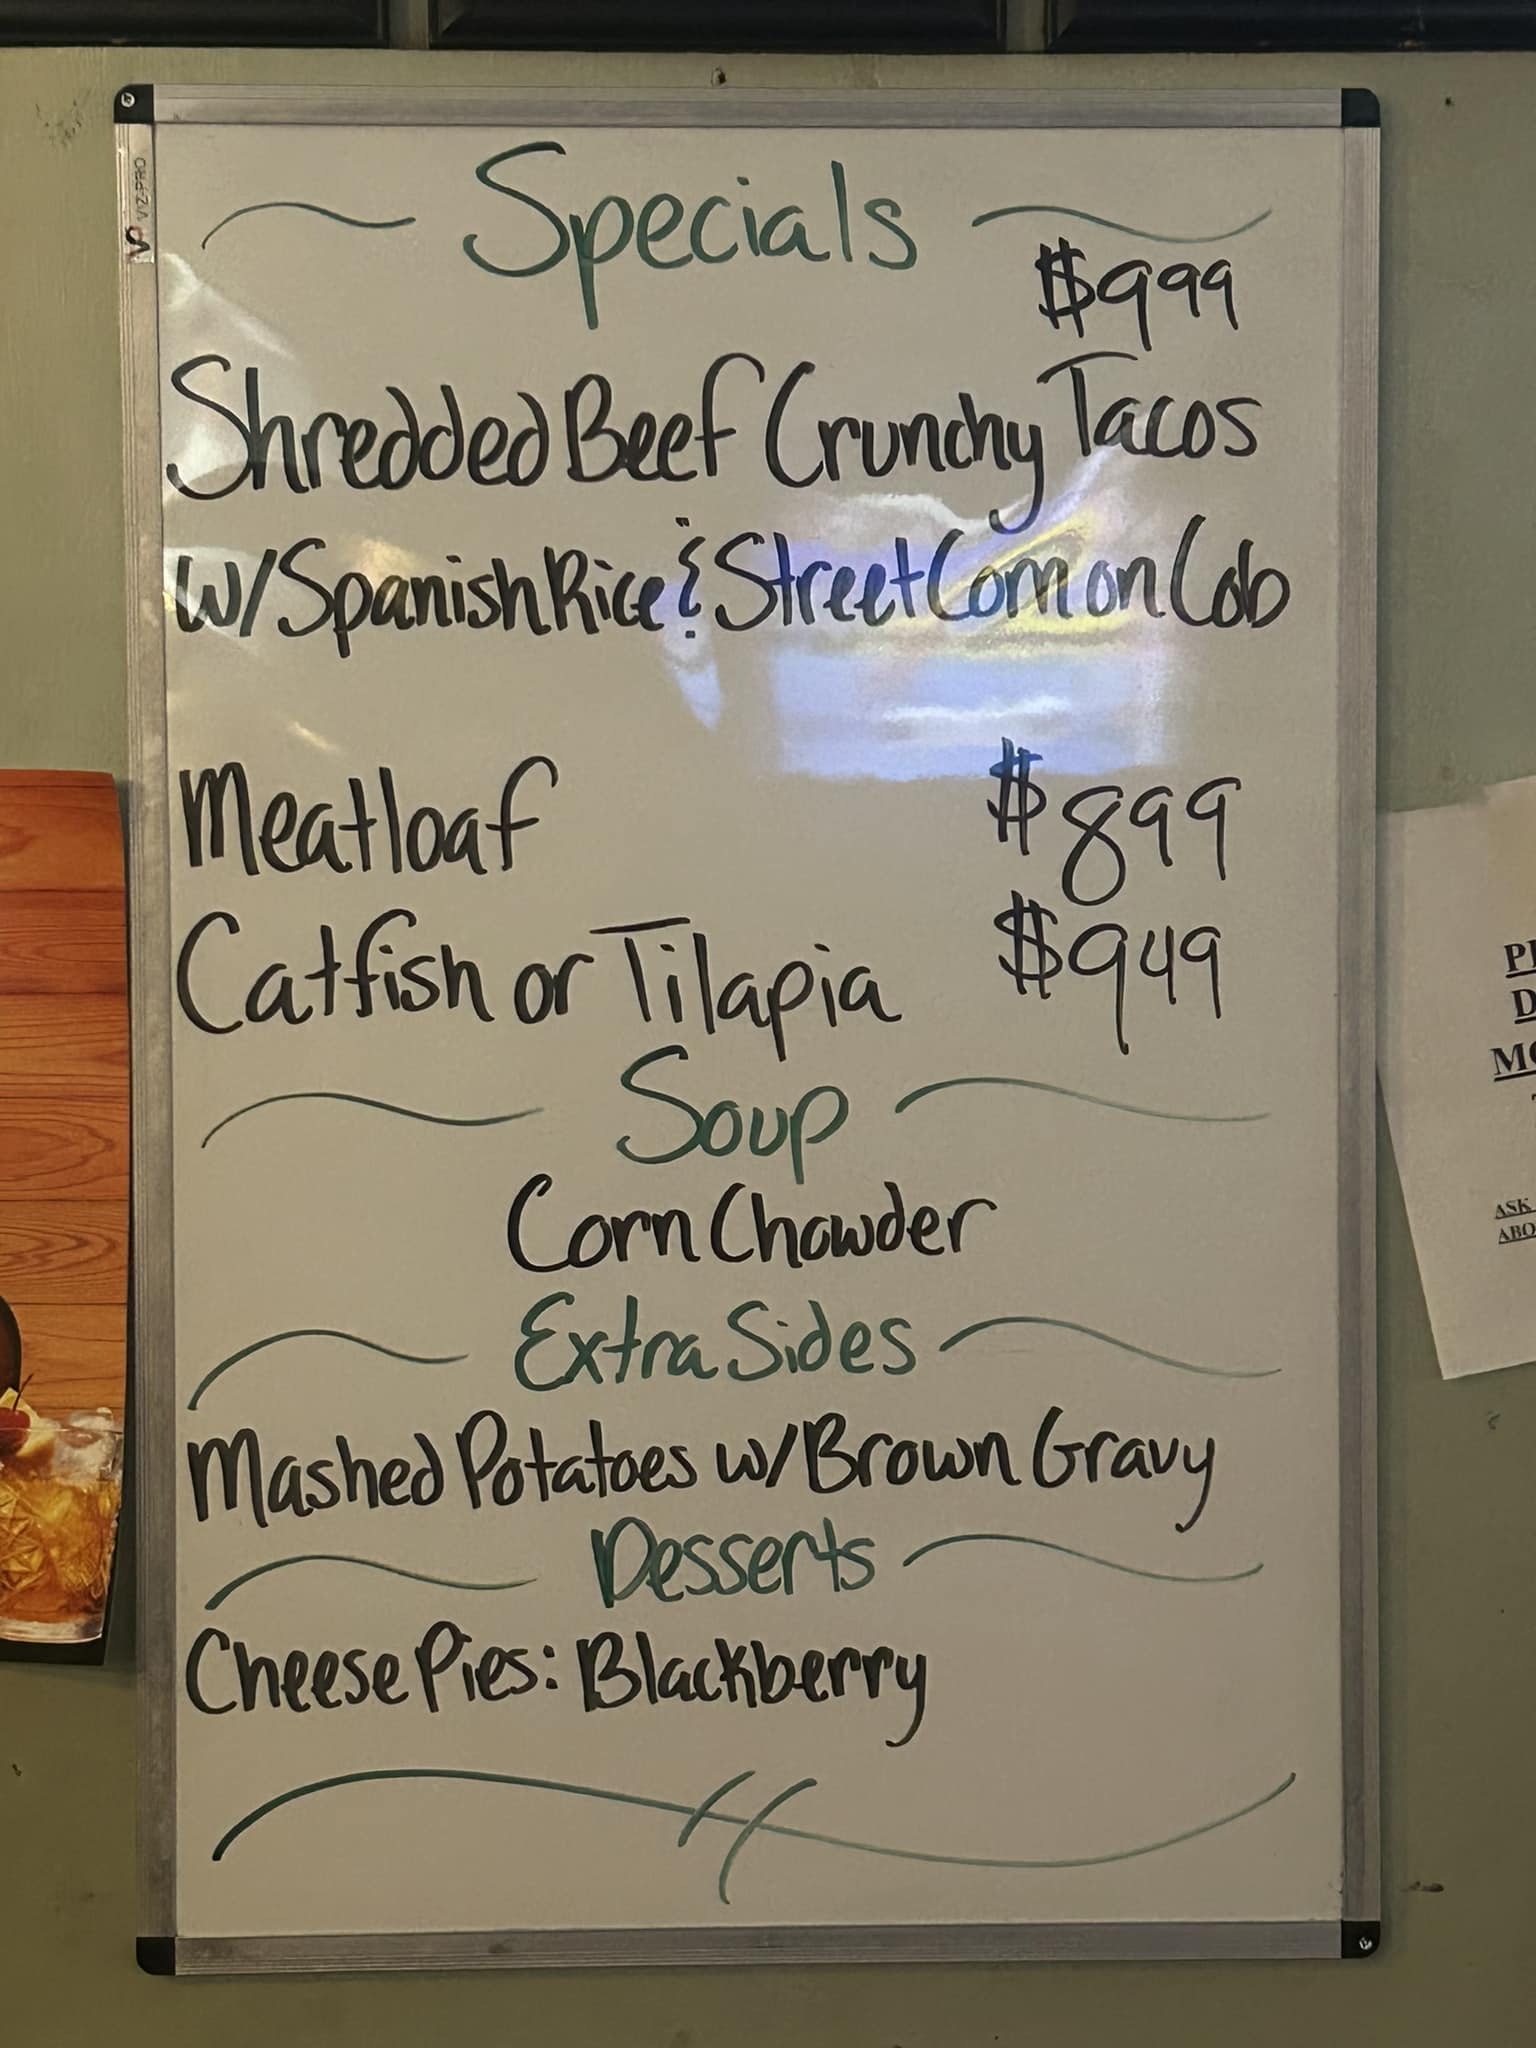 VIZ-PRO
Specials
$999
Shredded Beef Crunchy Tacos
w/Spanish Rice & Street Corn on Cob
Meatloaf $899
Catfish or Tilapia $949
Soup
Corn Chowder
Extra Sides
Mashed Potatoes w/Brown Gravy
Desserts
Cheese Pies: Blackberry
ASK